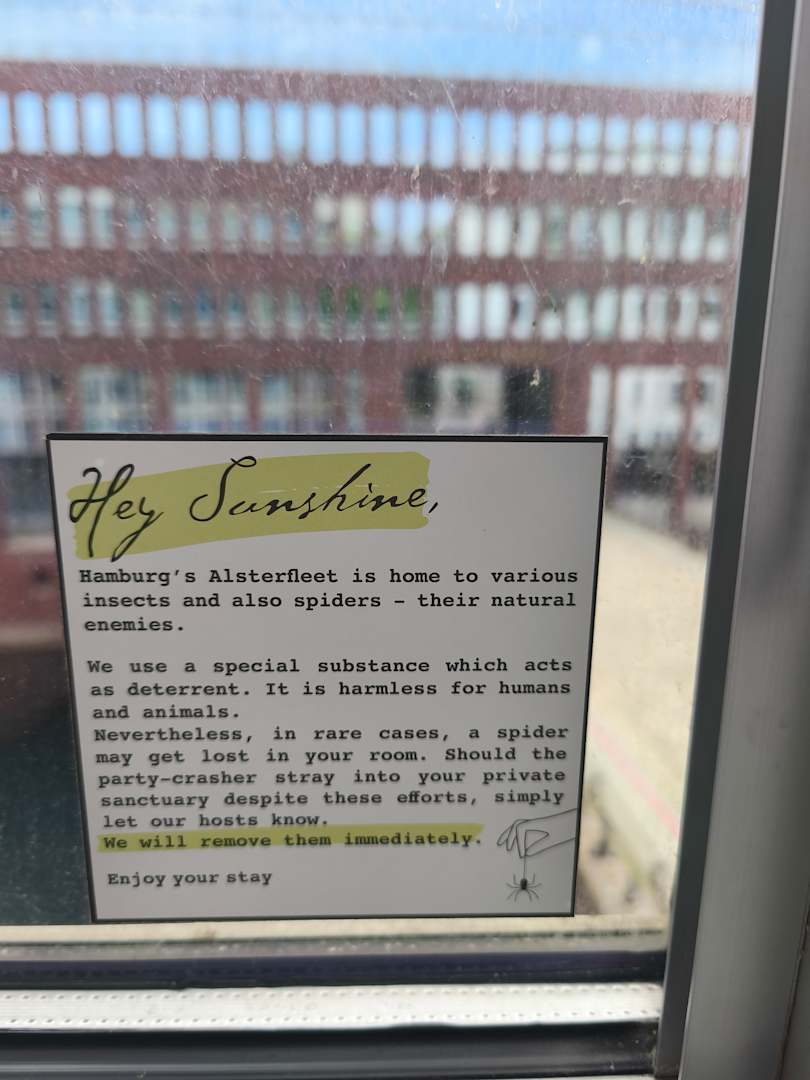 Hey Sunshine,
Hamburg's Alsterfleet is home to various
insects and also spiders – their natural
enemies.
We use a special substance which acts
as deterrent. It is harmless for humans
and animals.
Nevertheless, in rare cases, a spider
may get lost in your room. Should the
party-crasher stray into your private
sanctuary despite these efforts, simply
let our hosts know.
We will remove them immediately.
Enjoy your stay